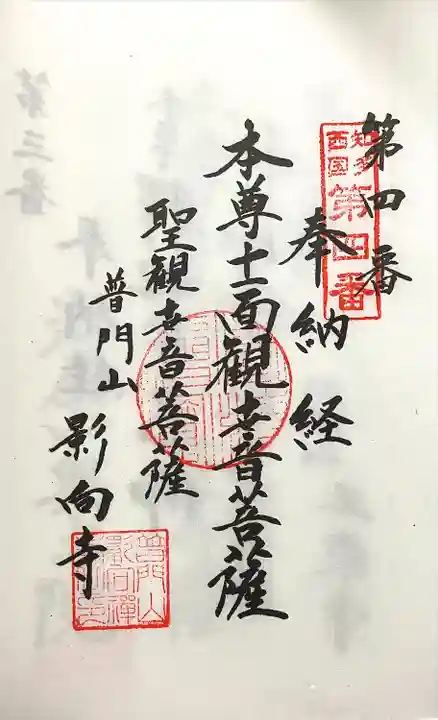 第四番
知多
西国
第四番
奉納経
本尊十一面観世音菩薩
聖観世音菩薩
普門山
影向寺
第三番